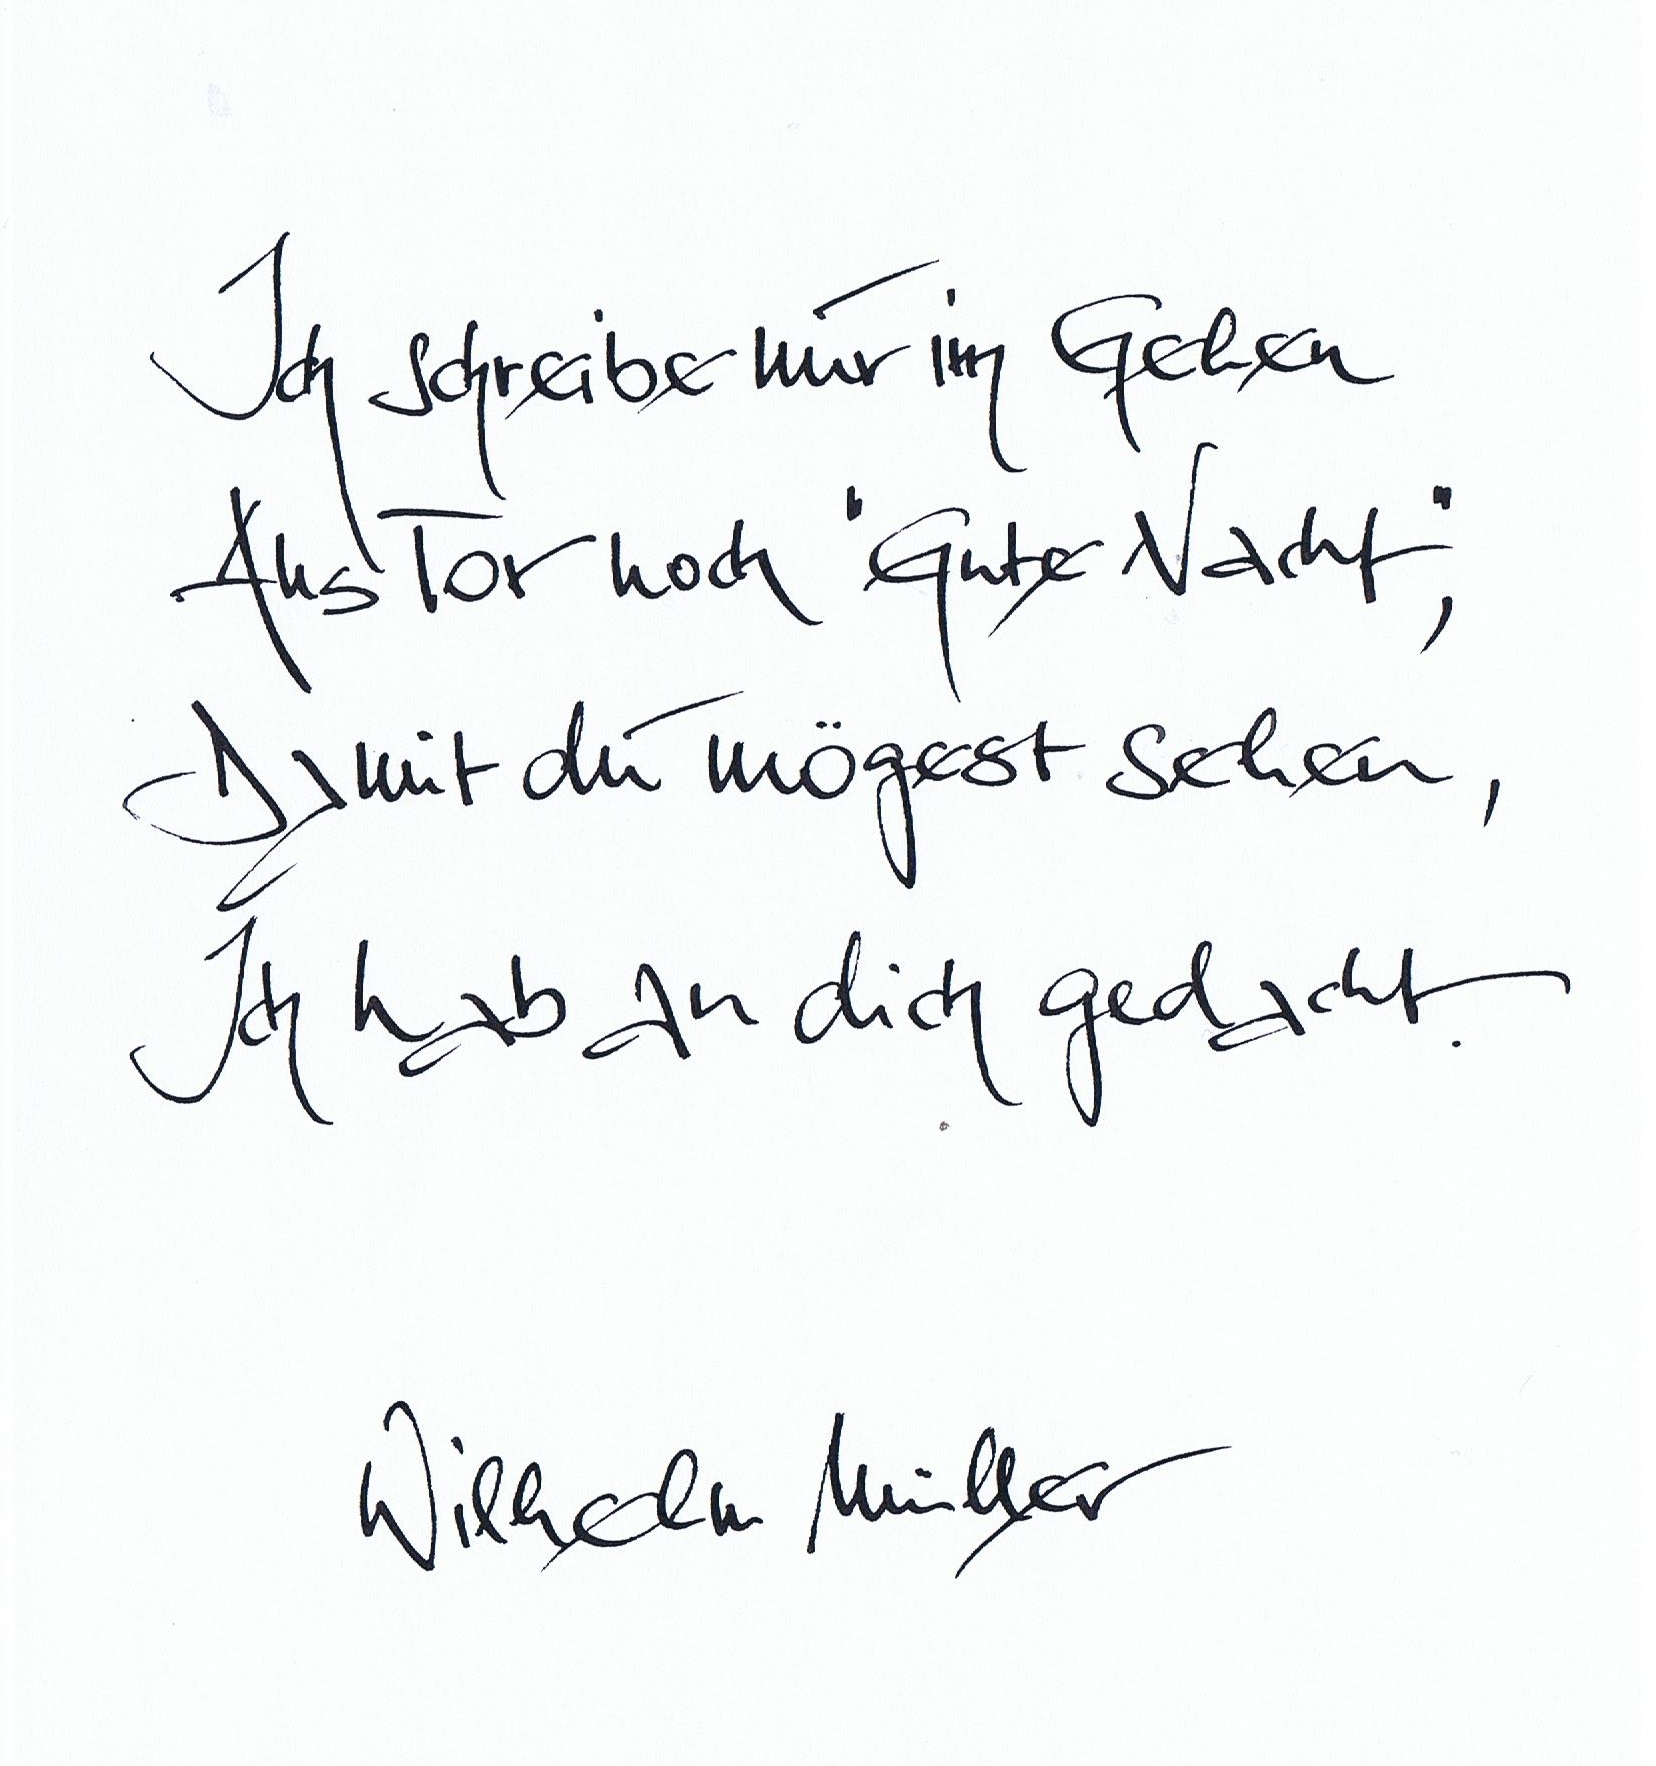 Ich schreibe nur im Gehen
Ans Tor noch "Gute Nacht",
Damit du mögest sehen,
Ich hab an dich gedacht.
Wilhelm Müller